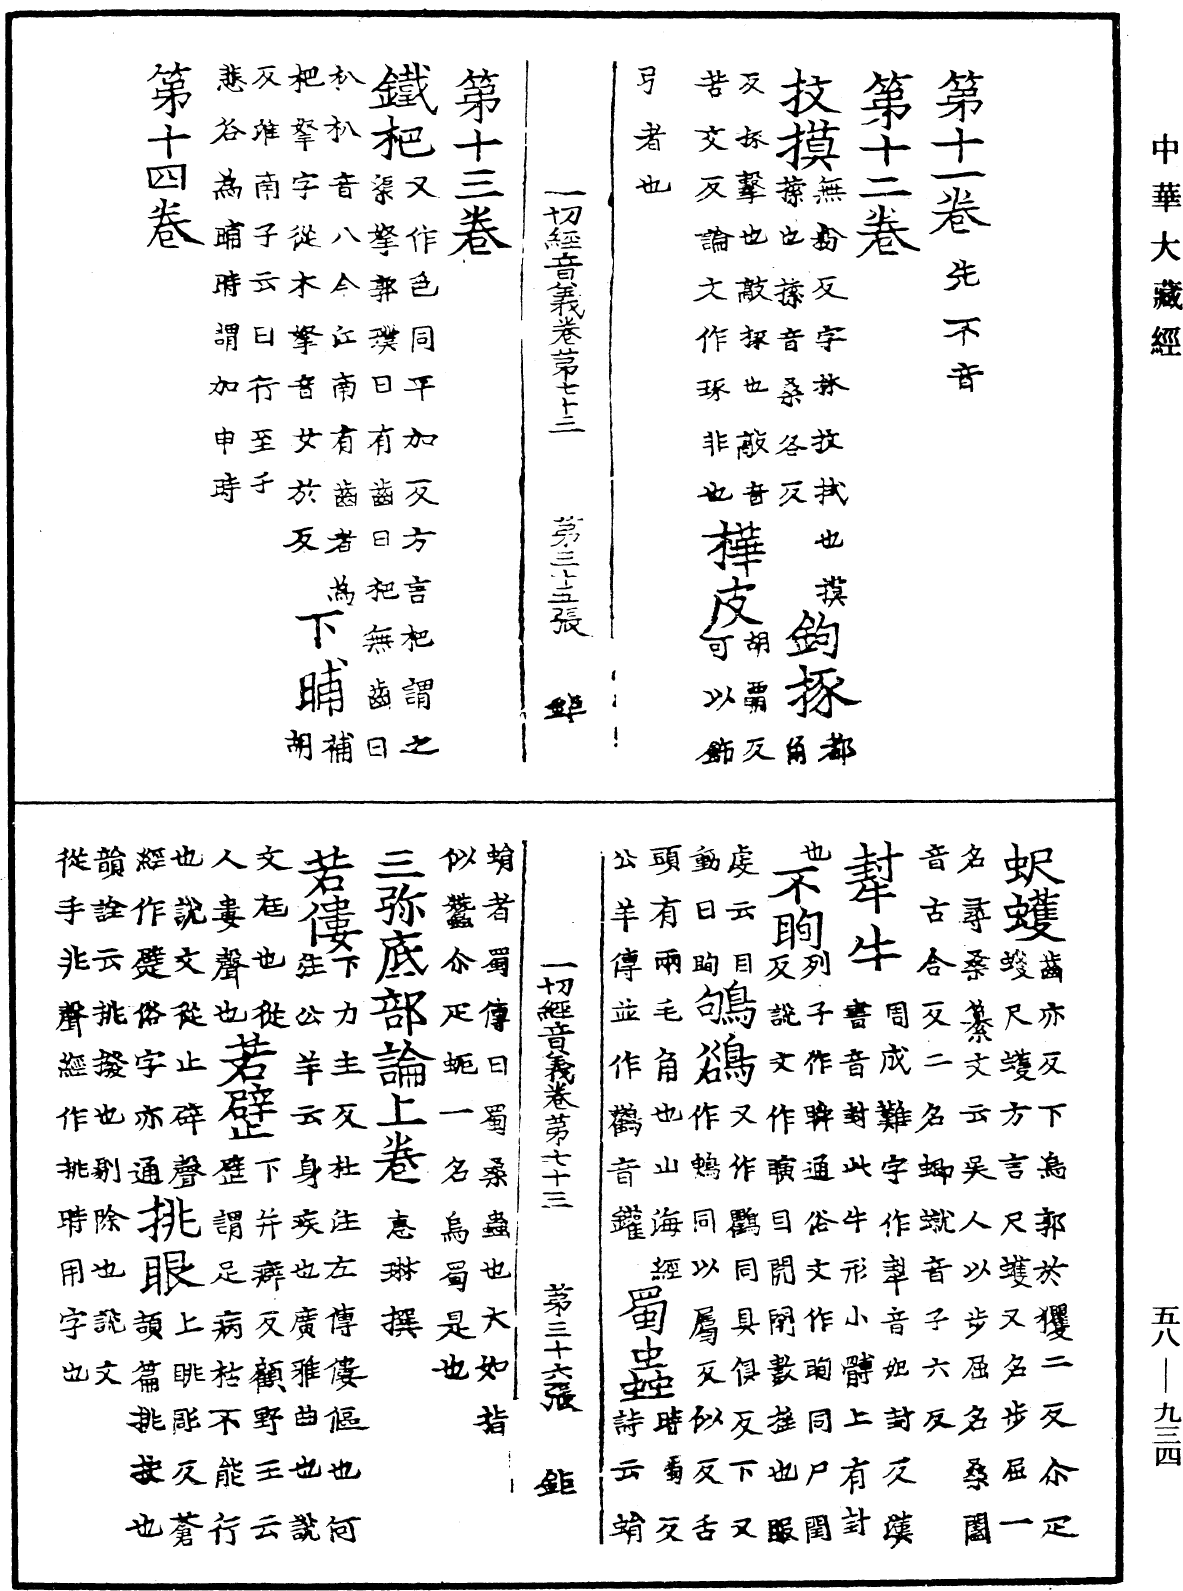 中華大藏經
第十一卷 先不音
第十二卷
抆摸 無粉反字林抆拭也摸
㨞也㨞音桑各反 鉤㧻 都角
反㧻擊也敲㧻也敲音
苦交反論文作琢非也 樺皮 胡霸反
可以飾
弓者也
一切經音義卷第七十三 第三十五張 鉅
第十三卷
鐵杷 又作色同平加反方言杷謂之
渠挐郭璞曰有齒曰杷無齒曰
朳朳音八今江南有齒者為
杷挐字從木挐音女於反 下晡 補胡
反淮南子云日行至于
悲谷為晡時謂加申時
第十四卷
蚇蠖 齒亦反下烏郭於攫二反尒疋
蝬尺蠖方言尺蠖又名步屈一
名尋桑纂文云吳人以步屈名桑闔
音古合反二名蝍䗘音子六反
犎牛 周成難字作犎音妃封反漢
書音封此牛形小髆上有封
也 不眴 列子作瞬通俗文作眴同尸閏
反說文作瞚目開閉數搖也服
虔云目動曰眴 鴝鵒 又作鸜同具俱反下又
作䳑同以屬反似反舌
頭有兩毛角也山海經
公羊傳並作鸛音鑵 蜀䖵 時蜀反
詩云蜎
蜎者蜀傳曰蜀桑蟲也大如指
似蠶尒疋蚅一名烏蜀是也
一切經音義卷第七十三 第三十六張 鉅
三弥底部論上卷 惠琳撰
若僂 下力主反杜注左傳僂傴也何
注公羊云身疾也廣雅曲也說
文尪也從
人婁聲也 若躄 下并癖反顧野王云
躄謂足病枯不能行
也說文從止辟聲
經作躄俗字亦通 挑眼 上眺彫反蒼
頡篇挑抉也
韻詮云挑撥也剔除也說文
從手兆聲經作挑時用字也
五八—九三四